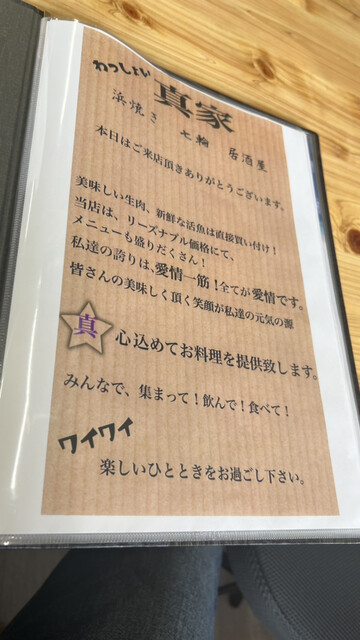 わっしょい
真家
浜焼き 七輪 居酒屋
本日はご来店頂きありがとうございます。
美味しい生肉、新鮮な活魚は直接買い付け！
当店は、リーズナブル価格にて、
メニューも盛りだくさん！
私達の誇りは、愛情一筋！全てが愛情です。
皆さんの美味しく頂く笑顔が私達の元気の源
真 心込めてお料理を提供致します。
みんなで、集まって！飲んで！食べて！
ワイワイ
楽しいひとときをお過ごし下さい。